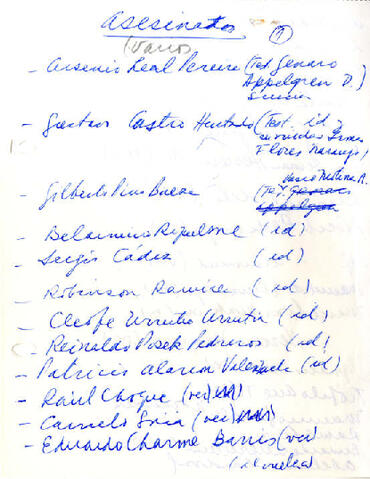 Asesinatos (1)
(varios
- Arsenio Leal Pereira (Test. Genaro
Appelgren D.)
- Gaston Castro Hurtado (Test. id y
Flores Naranjo)
Vasco Molina A.
- Gilberto Pino Baeza (Test. Genaro
Appelgren
- Belarmino Riquelme (id)
- Sergio Cádiz (id)
- Robinson Ramirez (id)
- Cleofe Urrutia Urrutia (id)
- Reinaldo Posek Pedreros (id)
- Patricio Alarcon Valenzuela (id)
- Raúl Choque (ver)
- Carmelo Soria (ver)
- Eduardo Charme Barros (ver